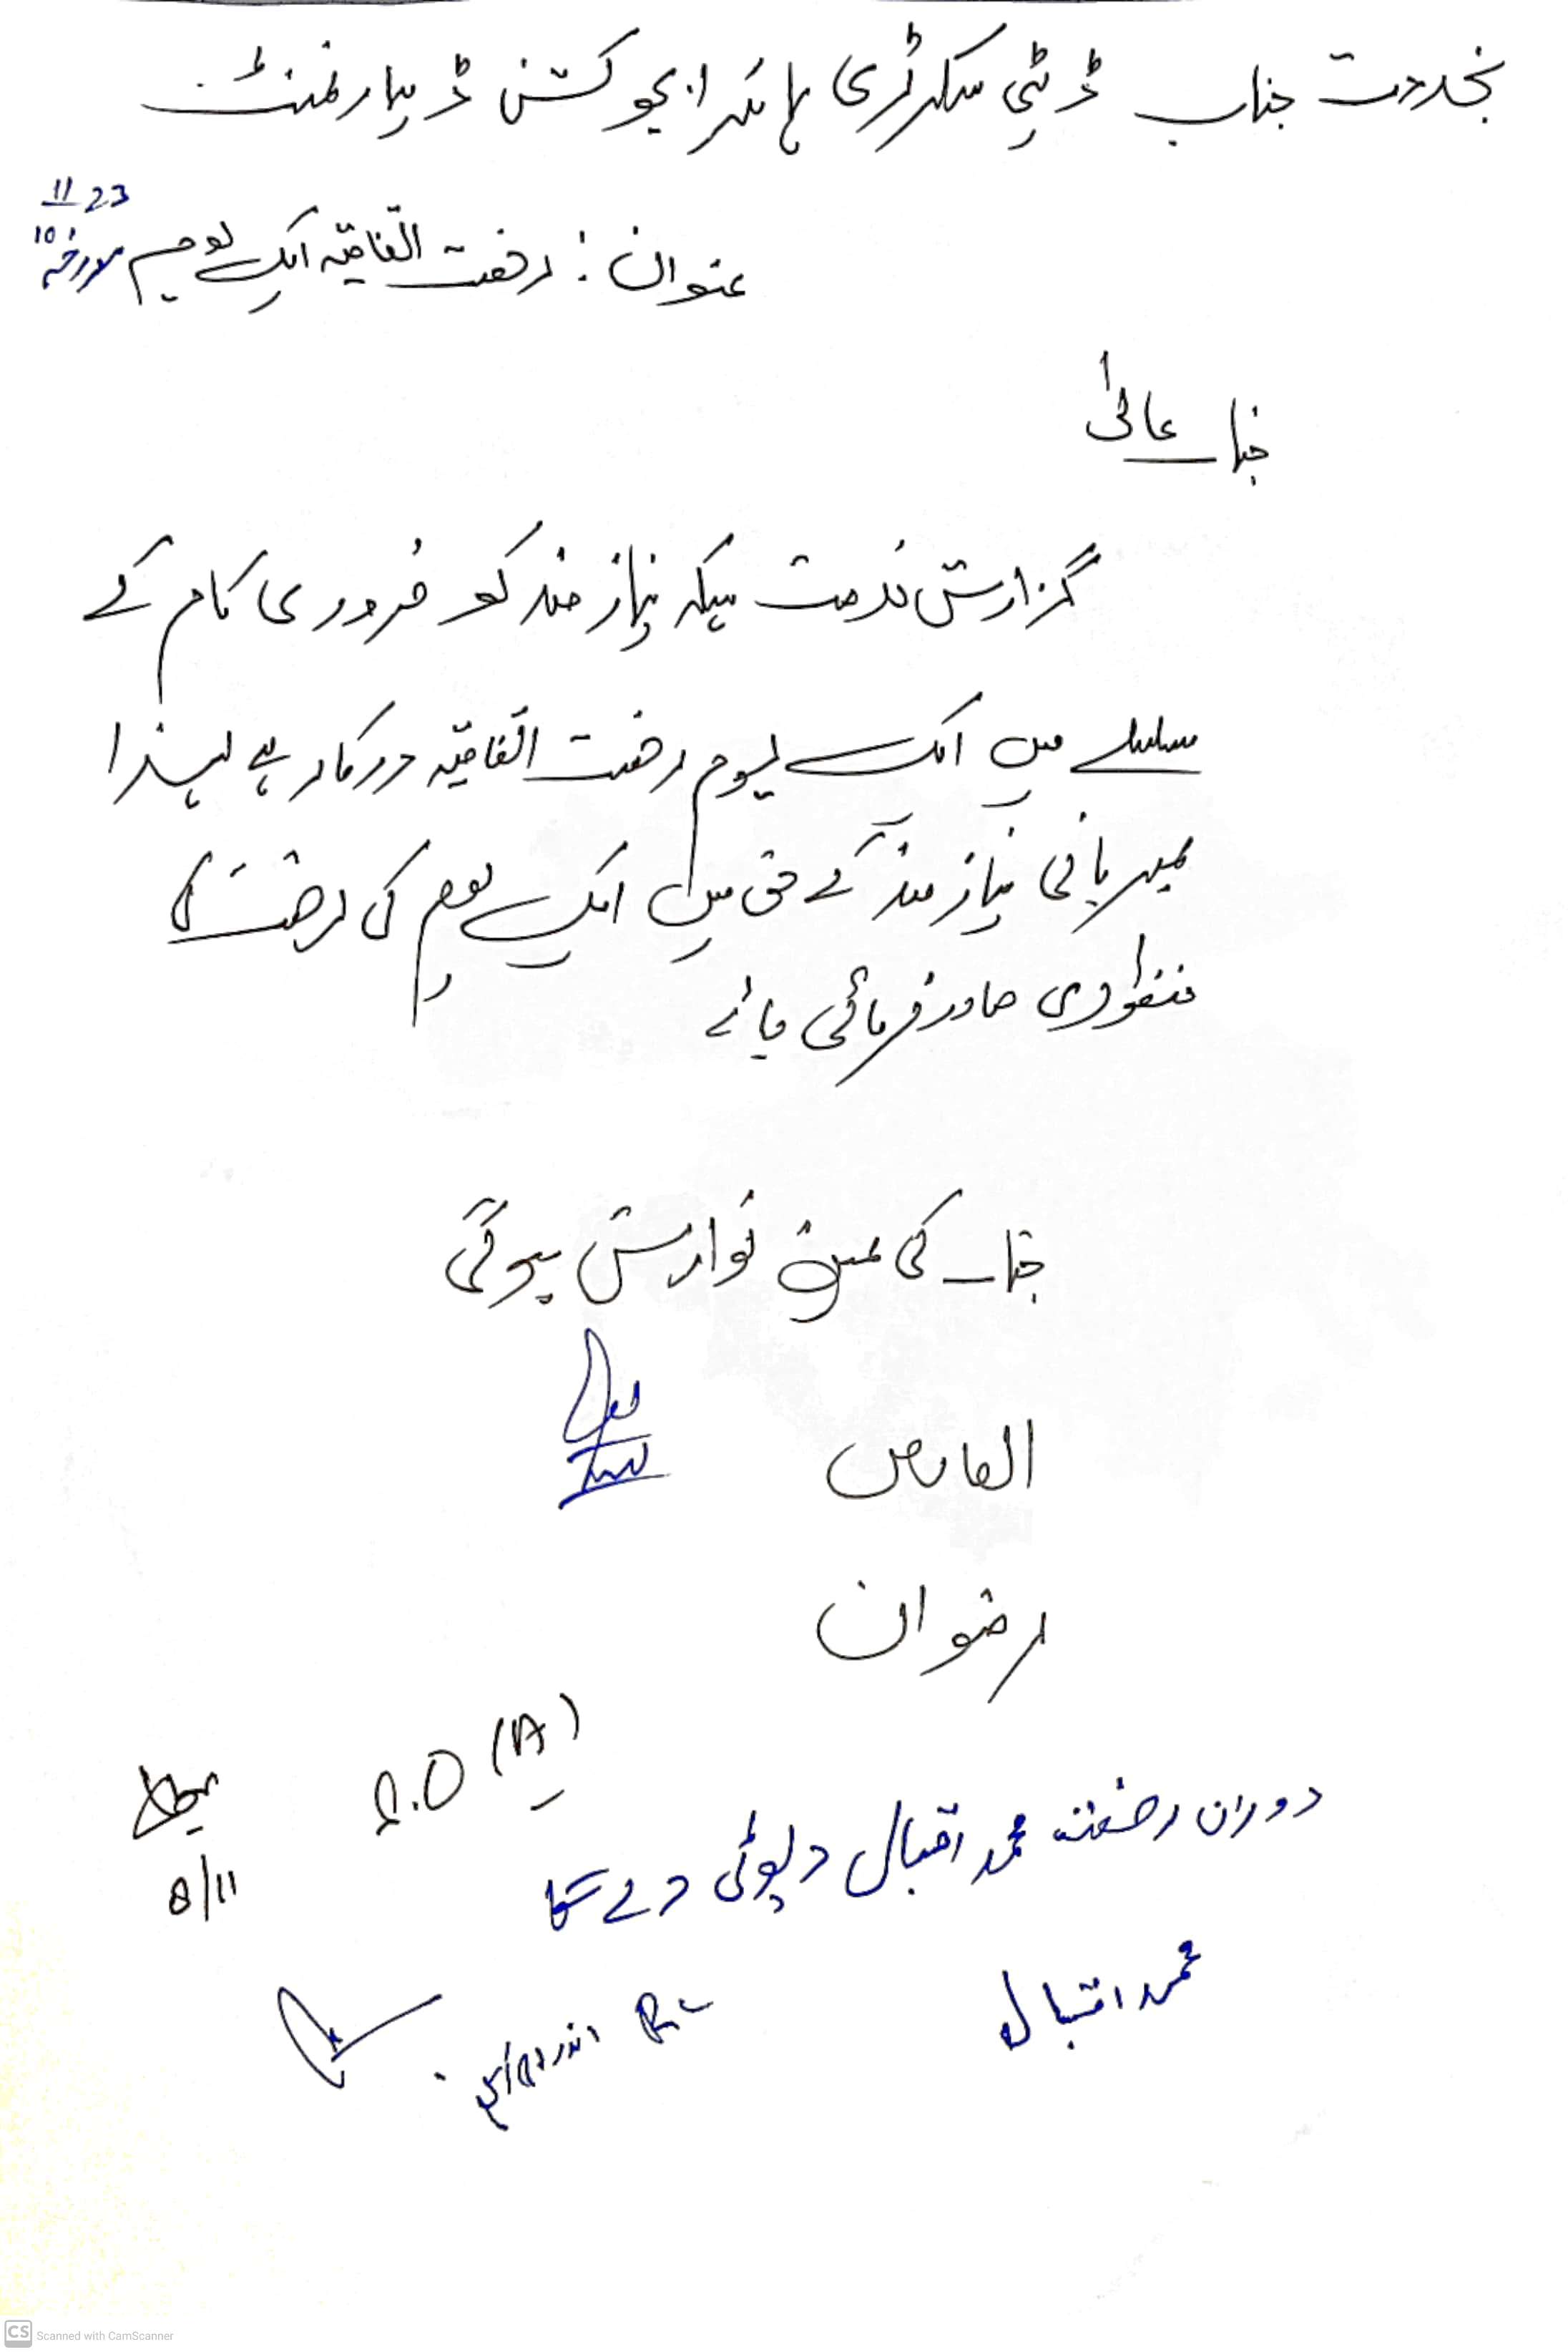 بخدمت جناب ڈپٹی سکرٹری ہائر ایجوکشن ڈیپارٹمنٹ
عنوان: رخصت اتفاقیہ ایک یوم مورخہ 10/11 23
جناب عالیٰ
گزارش خدمت ہیکہ نیاز مند کو ضروری کام کے
سلسلے میں ایک یوم رخصت اتفاقیہ درکار ہے لہذا
مہربانی نیاز مند کے حق میں ایک یوم کی رخصت کی
منظوری صادر فرمائی جائے
جناب کی عین نوازش ہوگی
العارض
رضوان
S.O (A)
8/11
دوران رخصت محمد اقبال ڈیوٹی دے گا
محمد اقبال